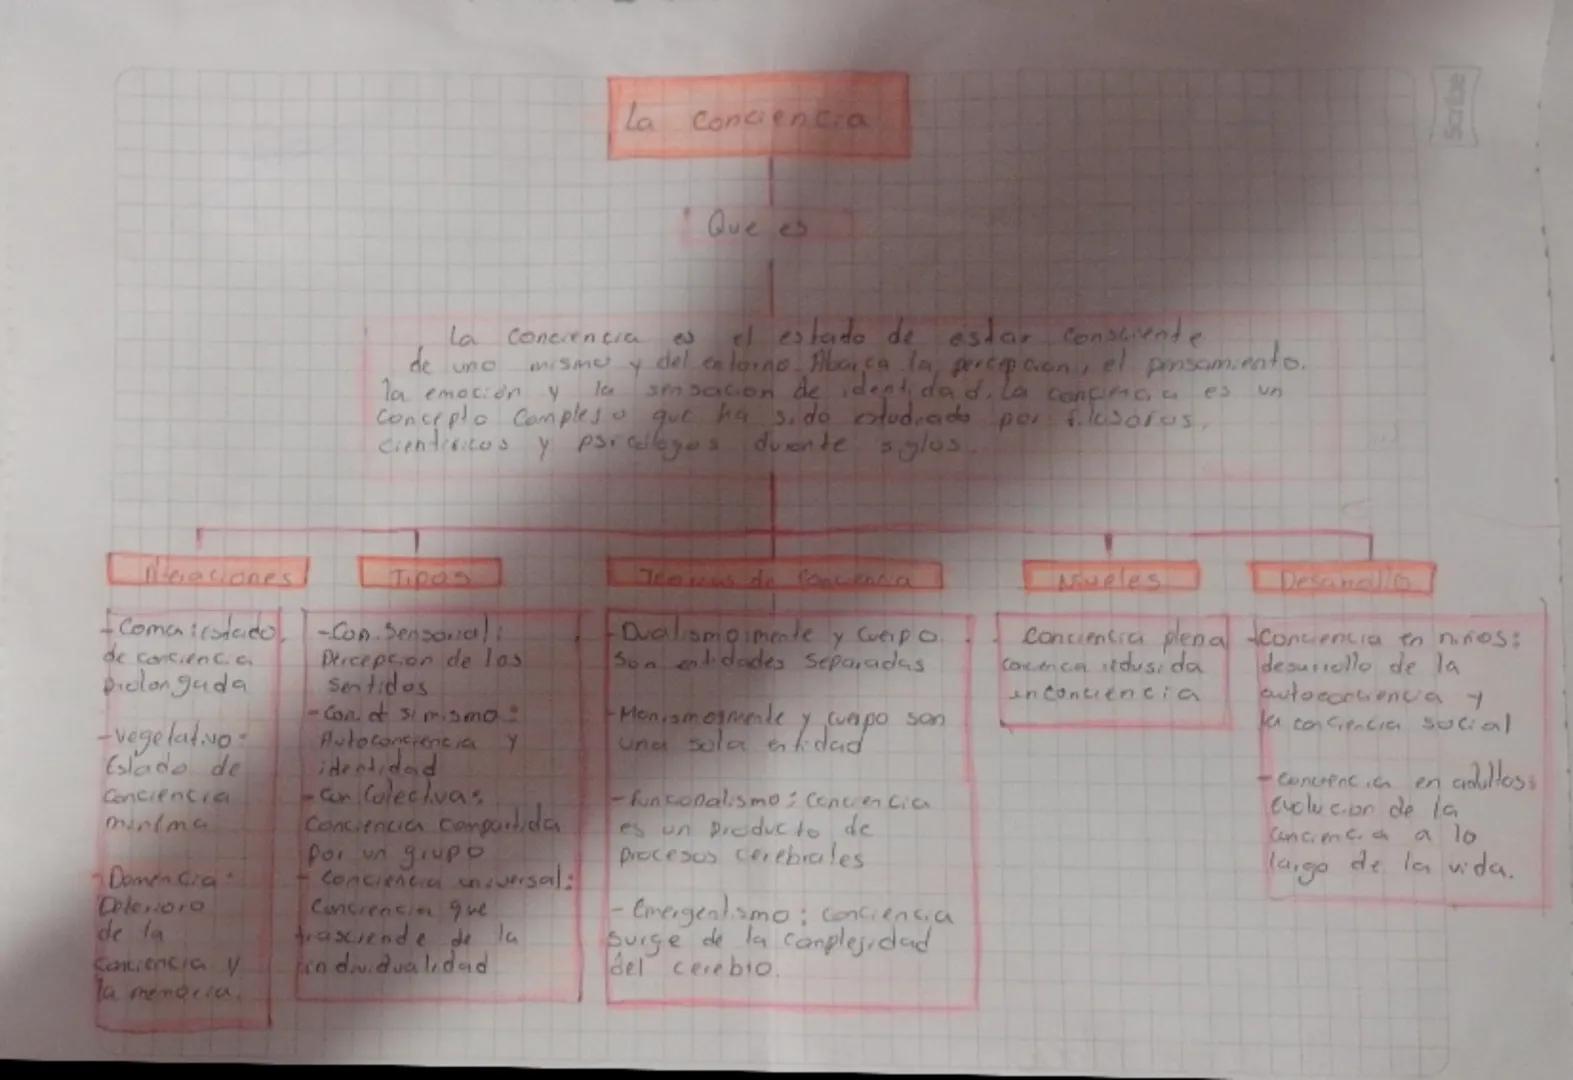 La conciencia
Scribe
Que es
La conciencia es el estado de estar consciente
de uno mismo y del entorno. Abarca la percepcion, el pensamiento.
la emoción y la sensacion de identidad. La conciencia es un
concepto complejo que ha sido estudiado por filosofos,
cientificos y psicologos durante siglos.
Alteraciones
Coma: estado
de conciencia
prolongada
- vegetativo:
Estado de
conciencia
minima
- Demencia:
Deterioro
de la
conciencia y
la memoria.
Tipos
- Con. Sensorial:
Percepcion de los
sentidos
- Con. de si mismo:
Autoconciencia y
identidad
- Con Colectiva:
Conciencia compartida
por un grupo
- Conciencia universal:
Conciencia que
trasciende de la
individualidad
Teorias de Conciencia
- Dualismo: mente y cuerpo
son entidades separadas
- Monismo: mente y cuerpo son
una sola entidad
- funcionalismo: conciencia
es un producto de
procesos cerebrales
- Emergentismo: conciencia
surge de la complejidad
del cerebro.
Niveles
Conciencia plena
conciencia redusida
inconciencia
Desarrollo
- Conciencia en niños:
desarrollo de la
autoconciencia y
la conciencia social
- conciencia en adultos:
Evolucion de la
conciencia a lo
largo de la vida.